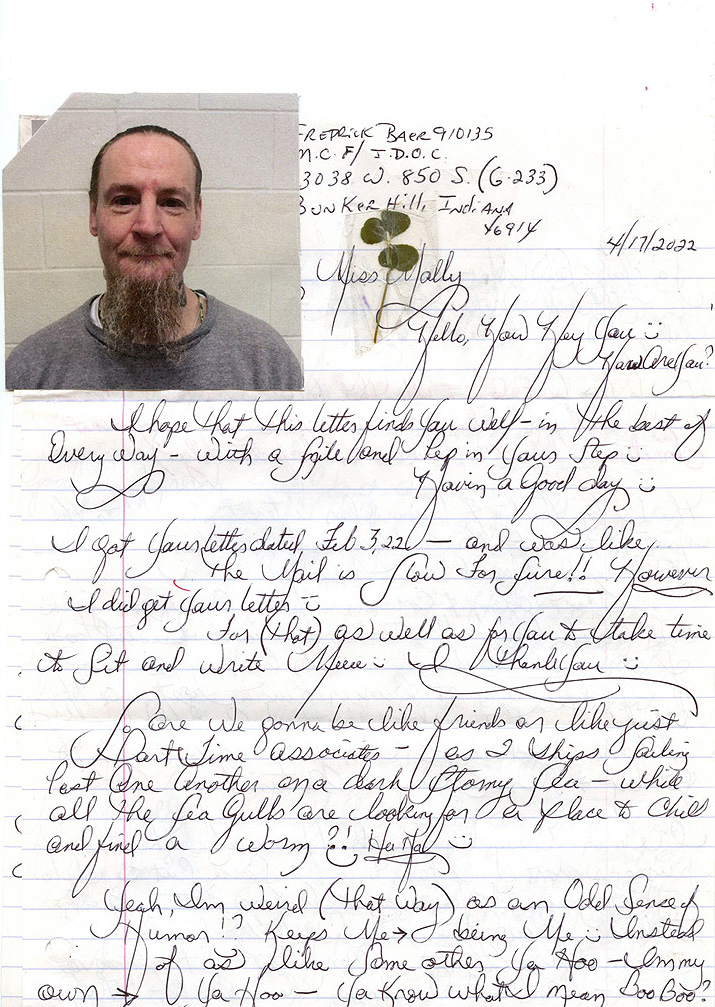 FREDRICK BAER 910135
M.C.F/ I.D.O.C.
3038 W. 850 S. (G-233)
BUNKER Hill, INDIANA
46914
4/17/2022
Miss Mally
Hello, How Hey You
How Are You?
I hope that this letter finds you well - in the best of
Every way - with a smile and Pep in Your Step
Havin a Good day
I got your letter dated, Feb 3, 22 — and was like,
the Mail is Slow For Sure!! However
I did get your letter
For (that) as well as for you to take time
to sit and write Meee I Thank You
So are we gonna be like friends or like just
Part Time associates - as 2 ships sailing
Past one another on a dark Stormy Sea - while
all the Sea Gulls are looking for a place to Chill
and find a worm ?! Ha Ha
Yeah, I'm weird (that way) as an Odd Sense of
Humor!? Keeps Me → being Me Instead
of as like some other Ya Hoo - I'm my
own → Ya Hoo - Ya Know what I mean Boo Boo?